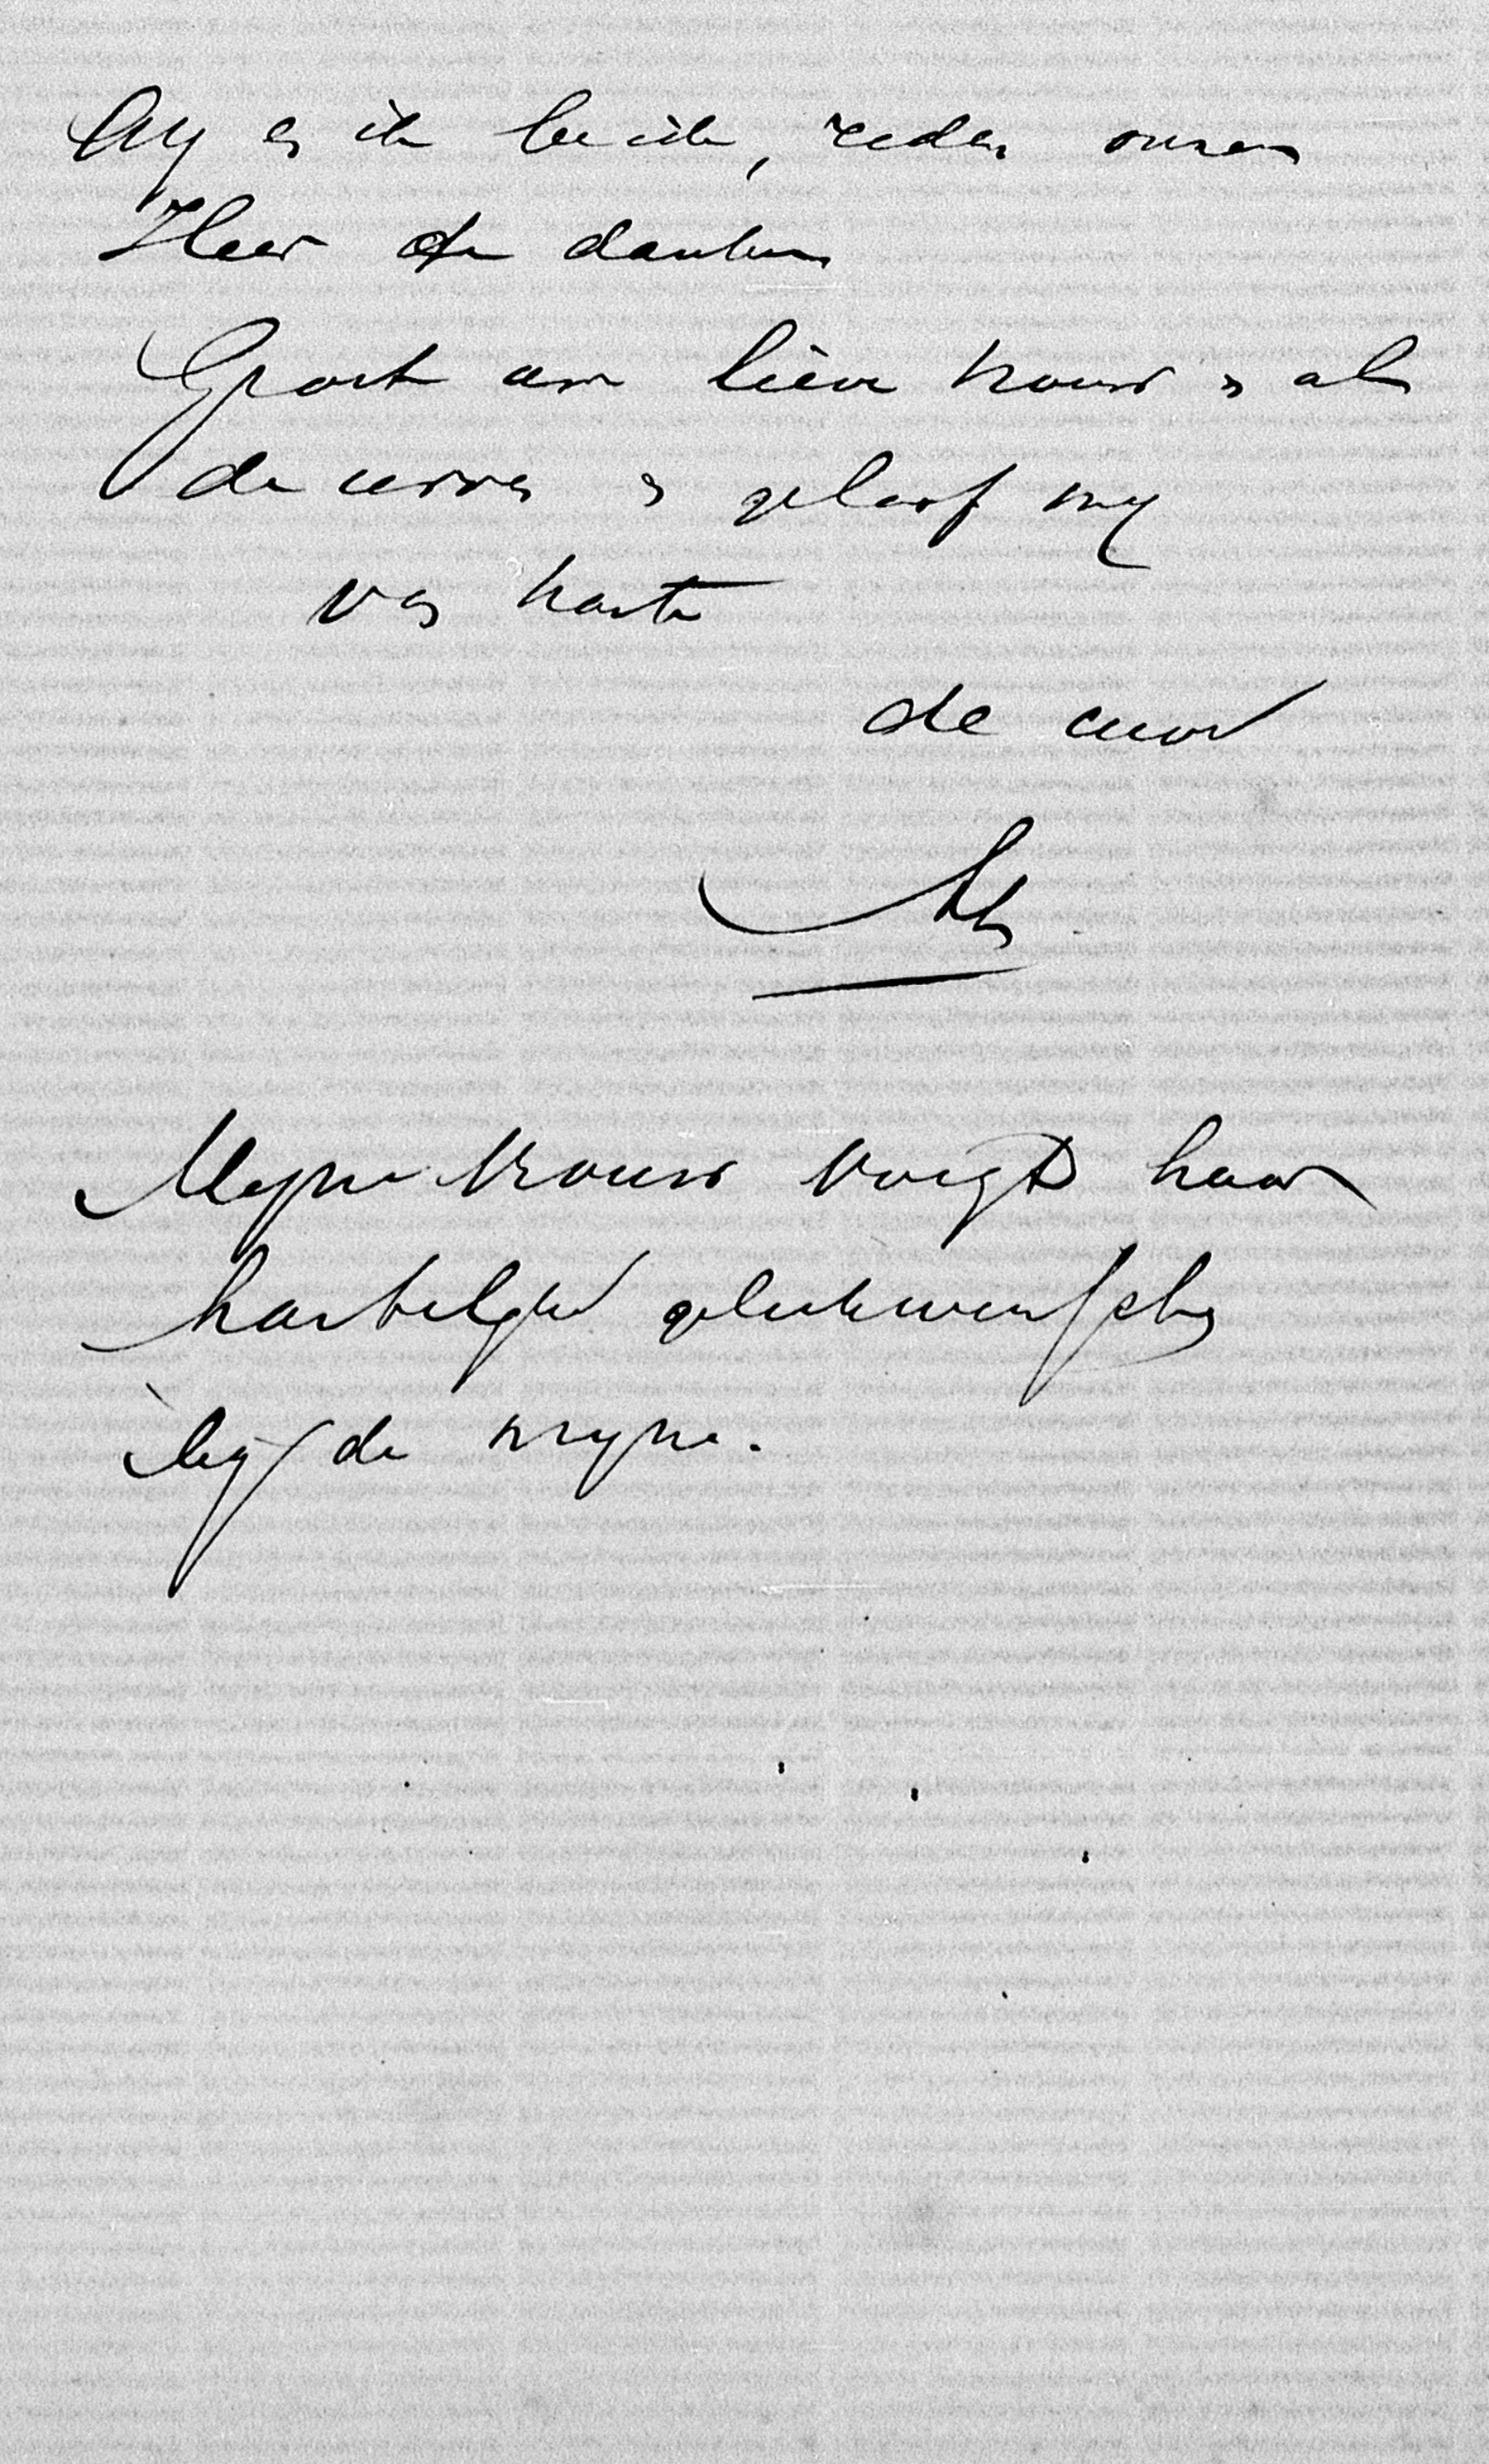 Gy en ik beide, reden onzen
Heer te danken
Groet uw lieve vrouw en al
de uwen en geloof my
van harte
de uwe
Mijne vrouw voegt haar
hartelyke gelukwenschen
by de myne.